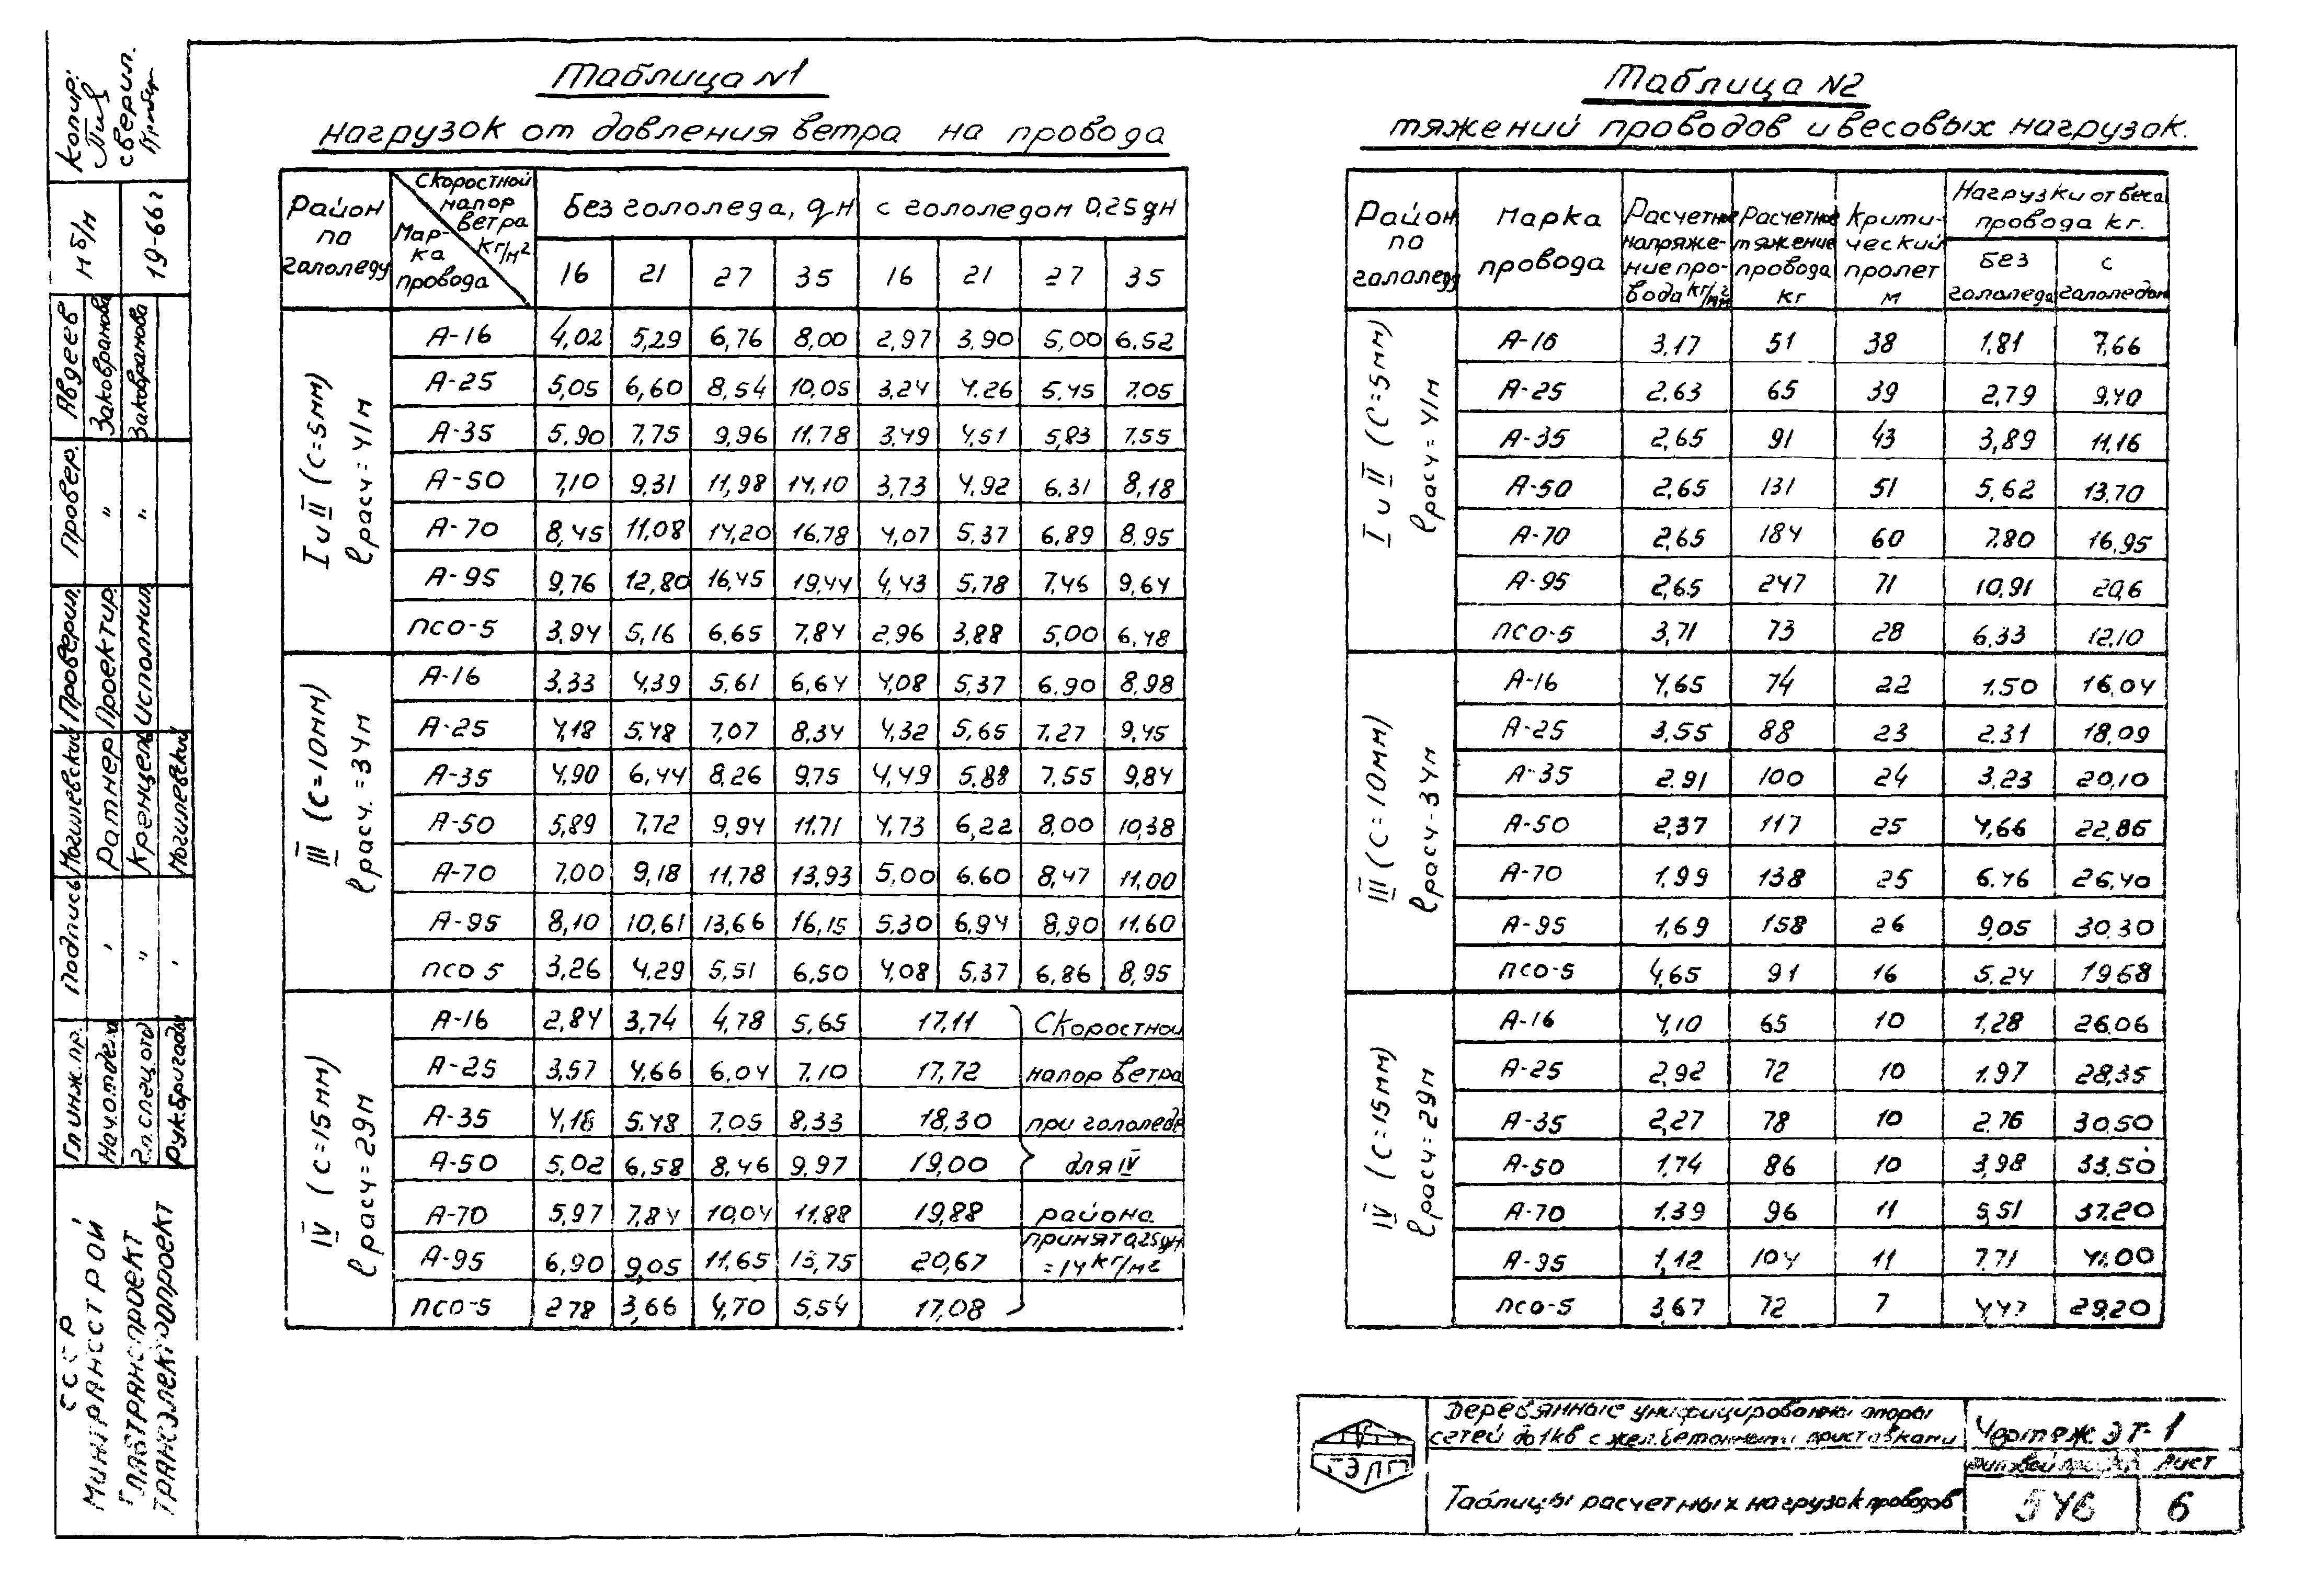 Таблица N1
нагрузок от давления ветра на провода
Район по гололеду | Скоростной напор ветра кг/м² | Марка провода | Без гололеда, qн | с гололедом 0,25qн
16 21 27 35 16 21 27 35
I и II (С=5мм) ℓрасч = 41м
А-16 4,02 5,29 6,76 8,00 2,97 3,90 5,00 6.52
А-25 5,05 6,60 8,54 10,05 3,24 4.26 5.45 7.05
А-35 5.90 7,75 9,96 11,78 3,49 4,51 5,83 7.55
А-50 7,10 9,31 11,98 14,10 3,73 4.92 6.31 8,18
А-70 8,45 11,08 14,20 16.78 4,07 5.37 6,89 8.95
А-95 9,76 12,80 16,45 19,44 4,43 5.78 7,46 9,64
ПСО-5 3,94 5,16 6,65 7,84 2,96 3,88 5,00 6,48
III (С=10мм) ℓрасч. = 34м
А-16 3.33 4,39 5,61 6,64 4,08 5,37 6.90 8,98
А-25 4,18 5.48 7,07 8,34 4,32 5,65 7.27 9,45
А-35 4,90 6,44 8,26 9,75 4,49 5.88 7,55 9,84
А-50 5,89 7,72 9,94 11.71 4,73 6,22 8,00 10,38
А-70 7,00 9,18 11,78 13,93 5,00 6.60 8,47 11,00
А-95 8,10 10,61 13,66 16,15 5.30 6,94 8,90 11.60
ПСО 5 3,26 4.29 5,51 6,50 4,08 5,37 6,86 8,95
IV (С=15мм) ℓрасч = 29м
А-16 2,84 3,74 4,78 5,65 17,11
А-25 3,57 4,66 6,04 7,10 17,72
А-35 4,18 5.48 7,05 8,33 18,30
А-50 5,02 6,58 8,46 9,97 19,00
А-70 5,97 7,84 10,04 11,88 19,88
А-95 6,90 9,05 11,65 13,75 20,67
ПСО-5 2 78 3,66 4,70 5,54 17,08
Скоростной
напор ветра
при гололеде
для IV
района
принят 0,25qн
=14кг/м²
Таблица N2
тяжений проводов и весовых нагрузок.
Район по гололеду | Марка провода | Расчетное напряжение провода кг/мм² | Расчетное тяжение провода кг | Критический пролет м | Нагрузки от веса провода кг.
без гололеда | с гололедом
I и II (С=5мм) ℓрасч = 41м
А-16 3,17 51 38 1,81 7,66
А-25 2,63 65 39 2,79 9,40
А-35 2,65 91 43 3,89 11,16
А-50 2,65 131 51 5,62 13,70
А-70 2,65 184 60 7.80 16,95
А-95 2,65 247 71 10,91 20,6
ПСО-5 3,71 73 28 6,33 12,10
III (С=10мм) ℓрасч-34м
А-16 4,65 74 22 1.50 16,04
А-25 3,55 88 23 2.31 18,09
А-35 2.91 100 24 3.23 20,10
А-50 2,37 117 25 4,66 22,86
А-70 1,99 138 25 6.46 26,40
А-95 1,69 158 26 9,05 30.30
ПСО-5 4,65 91 16 5.24 19,68
IV (С=15мм) ℓрасч = 29м
А-16 4,10 65 10 1,28 26.06
А-25 2,92 72 10 1.97 28,35
А-35 2,27 78 10 2.76 30.50
А-50 1.74 86 10 3,98 33.50
А-70 1.39 96 11 5,51 37.20
А-95 1,12 104 11 7.71 41.00
ПСО-5 3,67 72 7 4,47 29,20
Деревянные унифицированны опоры
сетей до 1кв с жел.бетонными приставками
Таблицы расчетных нагрузок проводов
Чертеж ЭТ-1
Лист
546
6
ТЭЛП
Копир:
сверил.
м б/м
19-66г
Авдеев
Заковранова
Заковранова
Провер.
Проверил
Проектир.
Исполнил
Могилевский
Ратнер
Кренцель
Могилевский
Подпись
Гл инж. пр.
Нач. отдела
Гл. спец. отд
Рук. бригады
СССР
Минтрансстрой
Главтранспроект
Трансэлектропроект